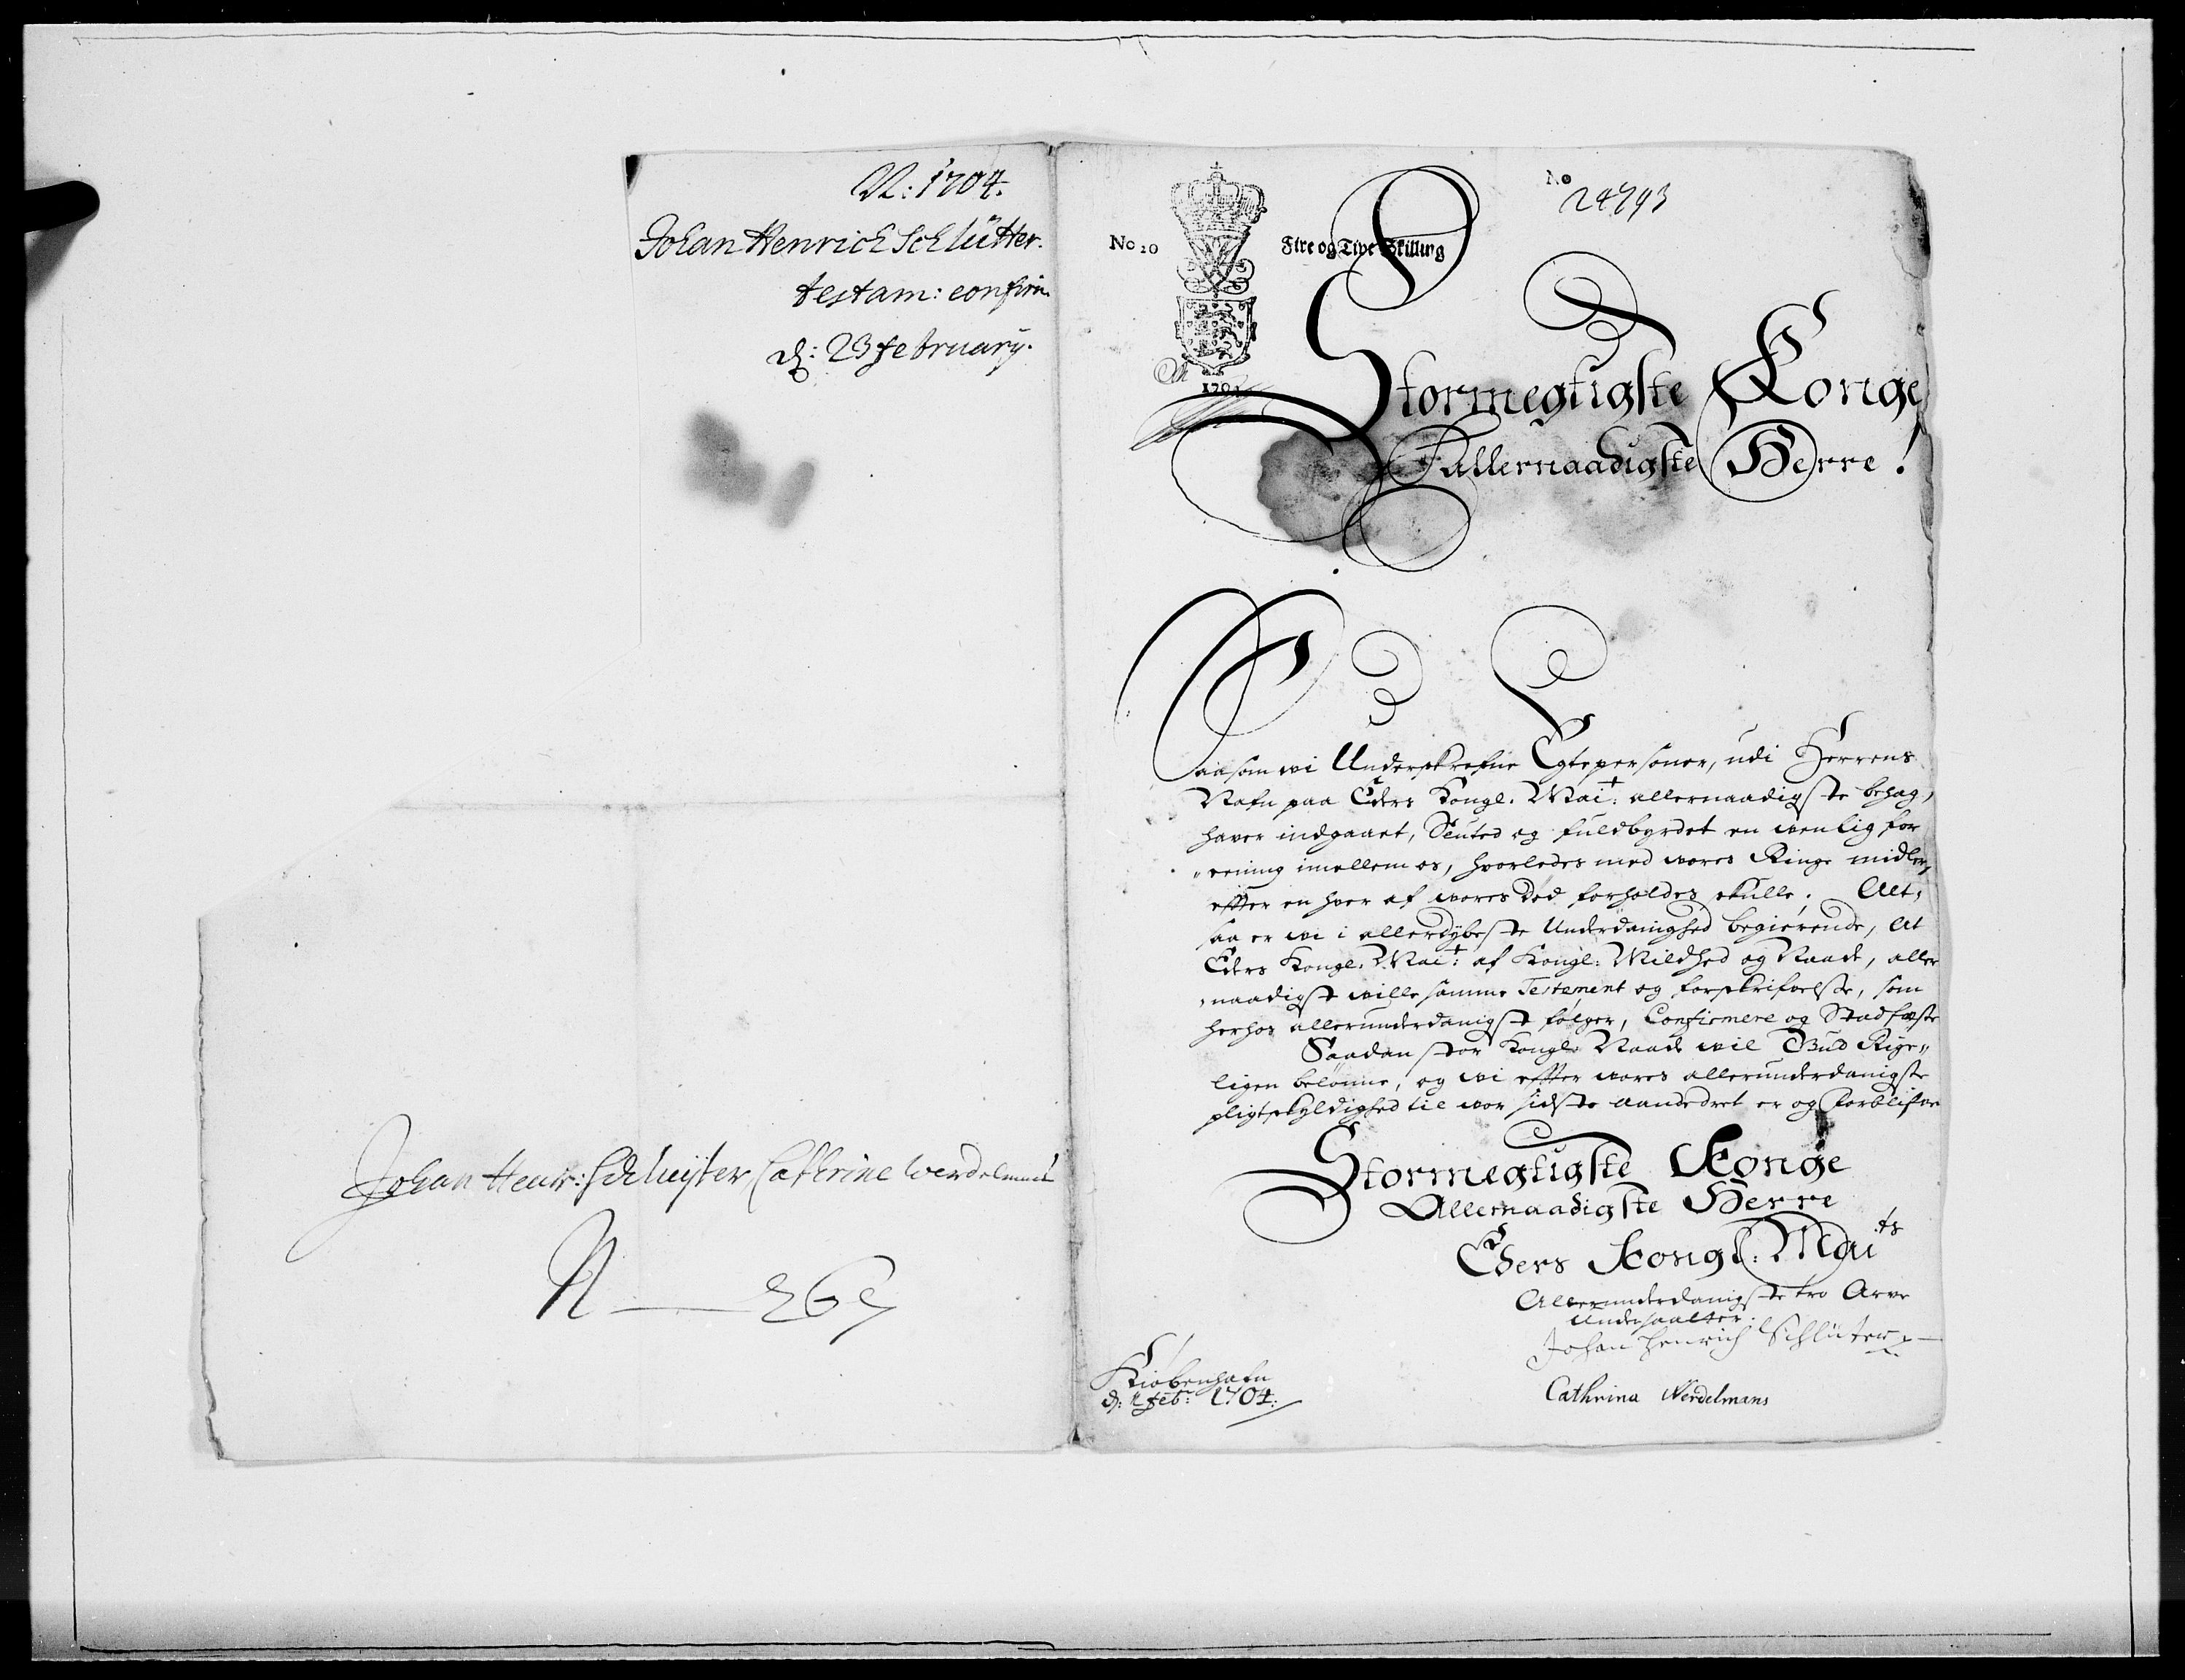 N: 1704.
Johan Henrich Schlütter.
testam: confirm.
d: 23 february.
Johan Henr: Schluyter Cathrine Werdelmans
N — 267
No 10
Fire og Tive Skilling
No
24793
1701
Stormegtigste Konge
Allernaadigste Herre!
Saasom wi Underskrefne Egtepersoner, udi Herrens
Nafn paa Eders Kongl. Mait: allernaadigste behag,
hafver indgaaet, Sluted og fuldbyrdet en wenlig for
"eening imellem os, hvorledes med wores Ringe midler,
effter en hver af wores Död forholdes skulle; Alt,
saa er wi i allerdybeste Underdanighed begierende, At
Eders Kongl. Mait: af Kongl: Mildhed og Naade, aller
,naadigst wille samme Testement og forskrifvelse, som
herhos allerunderdanigst følger, Confirmere og Stadfæste
Saadan stor Kongl. Naade wil Gud Rige„
ligen belønne, og wi effter wores allerunderdanigste
pligtskyldighed til wor sidste aandedret er og forblifver
Stormegtigste Konge
Allernaadigste Herre
Eders Kongl: Maits
Allerunderdanigste tro Arve
Undersaatter.
Johan Henrich Schlüter
Cathrina Werdelmans
Kiöbenhafn
d: feb: 1704: